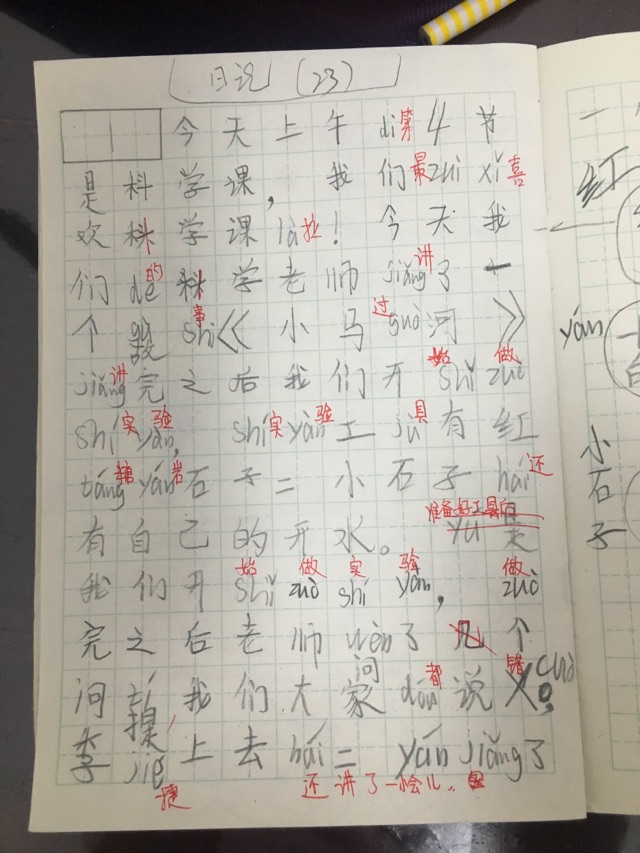 日记(23)
今天上午di第4节
是科学课,我们最zuì xǐ喜
欢科学课là拉!今天我
们de的科学老师jiǎng讲了一
个故shì事《小马guò过河》
jiǎng讲完之后我们开shǐ始zuò做
shí实yàn验,shí实yàn验工jù具有红
táng糖yán岩石子二小石子hái还
有自己的开水。yú是
准备好工具后
我们开shǐ始zuò做shí实yàn验,zuò做
完之后老师wèn问了几个
问tí,我们大家dōu都说cuò错
李jié捷上去hái二yǎn jiǎng了
还讲了一小会儿。
一
红
yán
小石子